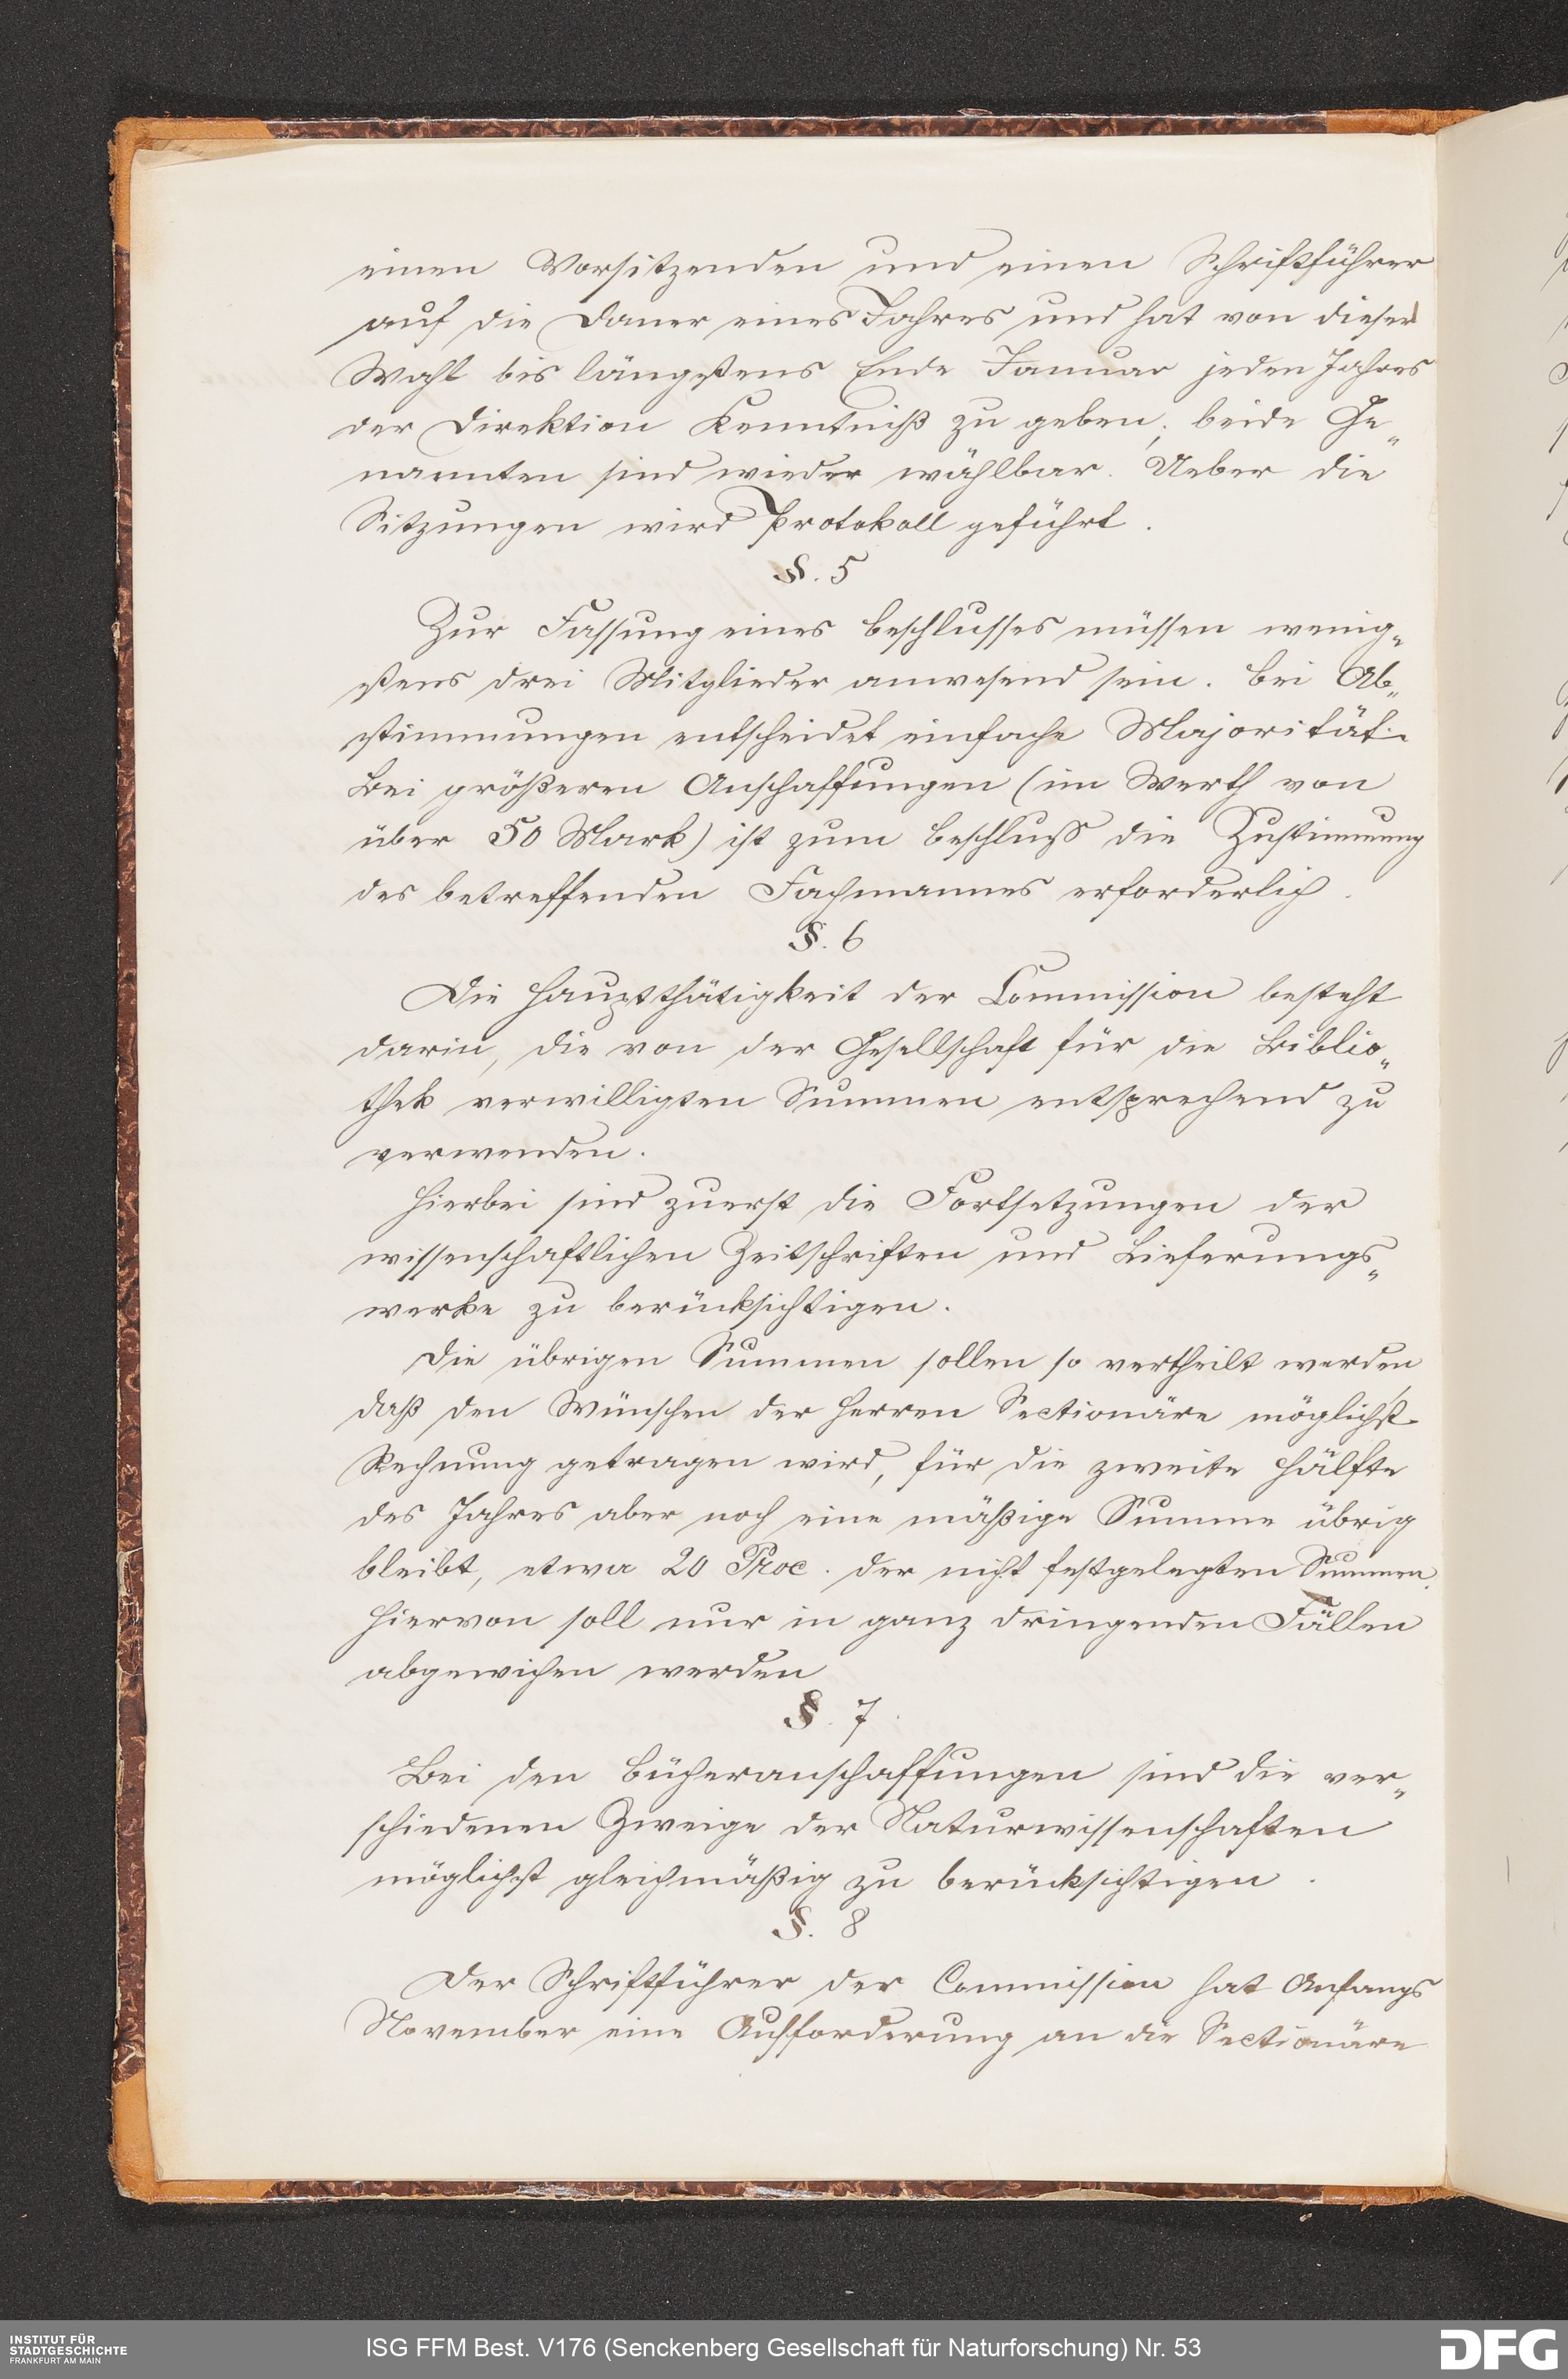 einen Vorsitzenden und einen Schriftführer
auf die Dauer eines Jahres und hat von dieser
Wahl bis längstens Ende Januar jeden Jahres
der Direktion Kenntniß zu geben; beide Ge„
nannten sind wieder wählbar. Ueber die
Sitzungen wird Protokoll geführt.
§. 5
Zur Fassung eines Beschlusses müssen wenig„
stens drei Mitglieder anwesend sein. Bei Ab„
stimmungen entscheidet einfache Majorität.
Bei größeren Anschaffungen (im Werth von
über 50 Mark) ist zum Beschluß die Zustimmung
des betreffenden Fachmannes erforderlich.
§. 6
Die Hauptthätigkeit der Commission besteht
darin, die von der Gesellschaft für die Biblio„
thek verwilligten Summen entsprechend zu
verwenden.
Hierbei sind zuerst die Fortsetzungen der
wissenschaftlichen Zeitschriften und Lieferungs„
werke zu berücksichtigen.
Die übrigen Summen sollen so vertheilt werden,
daß den Wünschen der Herren Sectionäre möglichst
Rechnung getragen wird, für die zweite Hälfte
des Jahres aber noch eine mäßige Summe übrig
bleibt, etwa 20 Proc. der nicht festgelegten Summen.
Hiervon soll nur in ganz dringenden Fällen
abgewichen werden
§. 7.
Bei den Bücheranschaffungen sind die ver„
schiedenen Zweige der Naturwissenschaften
möglichst gleichmäßig zu berücksichtigen.
§. 8
Der Schriftführer der Commission hat Anfangs
November eine Aufforderung an die Sectionäre
INSTITUT FÜR
STADTGESCHICHTE
FRANKFURT AM MAIN
ISG FFM Best. V176 (Senckenberg Gesellschaft für Naturforschung) Nr. 53
DFG